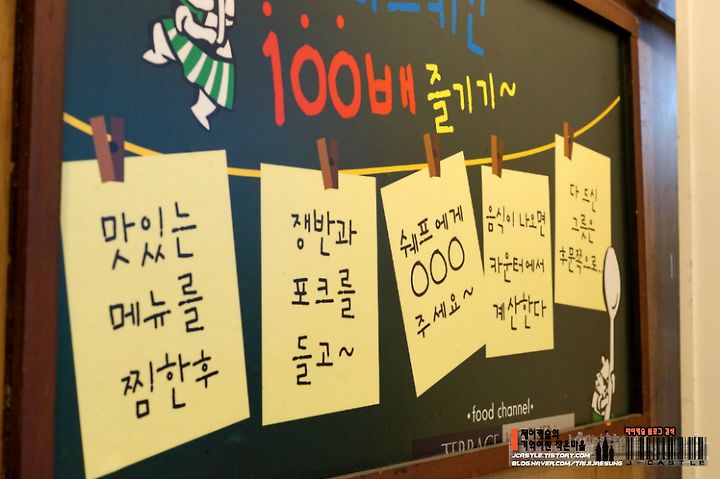 100배 즐기기~
맛있는
메뉴를
찜한후
쟁반과
포크를
들고~
쉐프에게
OOO
주세요~
음식이 나오면
카운터에서
계산한다
다 드신
그릇은
후문쪽으로...
•food channel•
TERRACE
제이캐슬의
기억이란 작은마을
JCASTLE.TISTORY.COM
BLOG.NAVER.COM/TAIJIJAESUNG
제이캐슬 블로그 검색
J-CASTLE